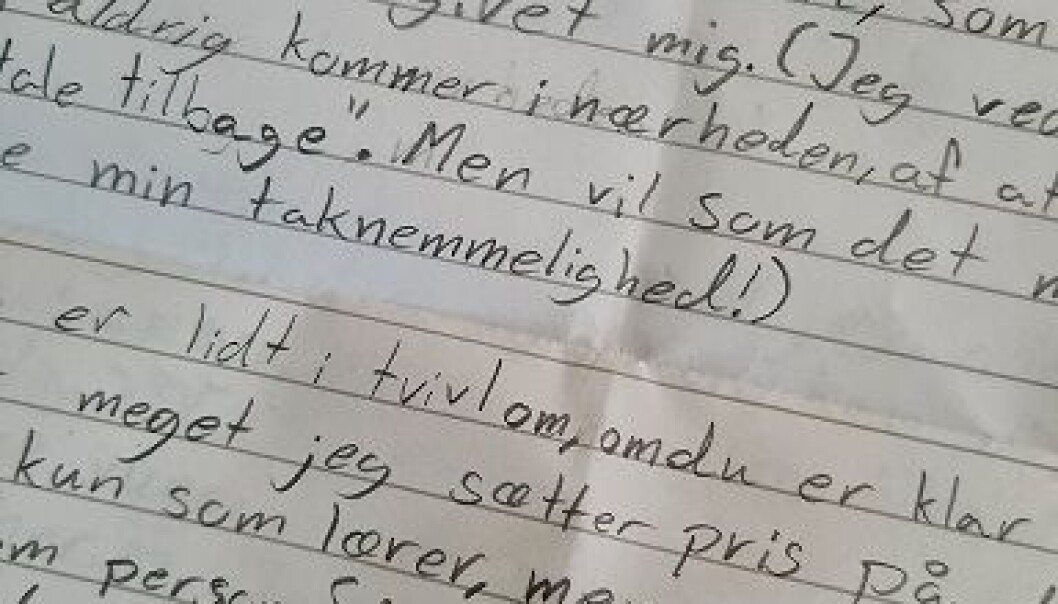 mig. (Jeg
aldrig kommer i nærheden, af at
tale tilbage". Men vil som det
min taknemmelighed!)
er lidt i tvivl om, om du er klar
meget jeg sætter pris på
kun som lærer,